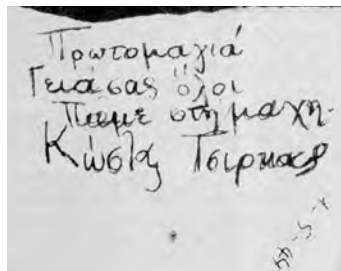 Πρωτομαγιά
Γειά σας όλοι
Πάμε στη μαχη.
Κώστας Τσιρκας
1-5-44